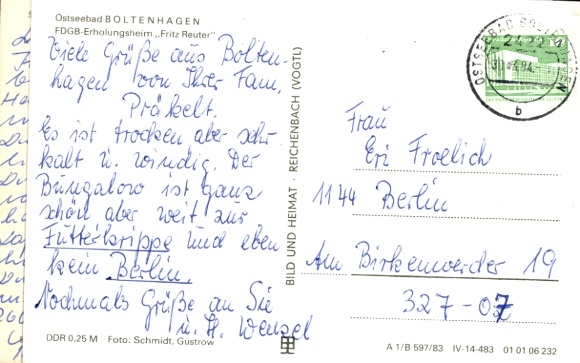 Ostseebad BOLTENHAGEN
FDGB-Erholungsheim „Fritz Reuter"
Viele Grüße aus Bolten-
hagen von Ihrer Fam.
Präkelt.
Es ist trocken aber sehr
kalt u. windig. Der
Bungalow ist ganz
schön aber weit zur
Futterkrippe und eben
kein Berlin.
Nochmals Grüße an Sie
u. H. Wenzel
DDR 0,25 M Foto: Schmidt, Güstrow
BILD UND HEIMAT · REICHENBACH (VOGTL)
OSTSEEBAD BOLTENHAGEN
2422
84
b
Frau
Eri Froelich
1144 Berlin
Am Birkenwerder 19
327-07
A 1/B 597/83 IV-14-483 01 01 06 232